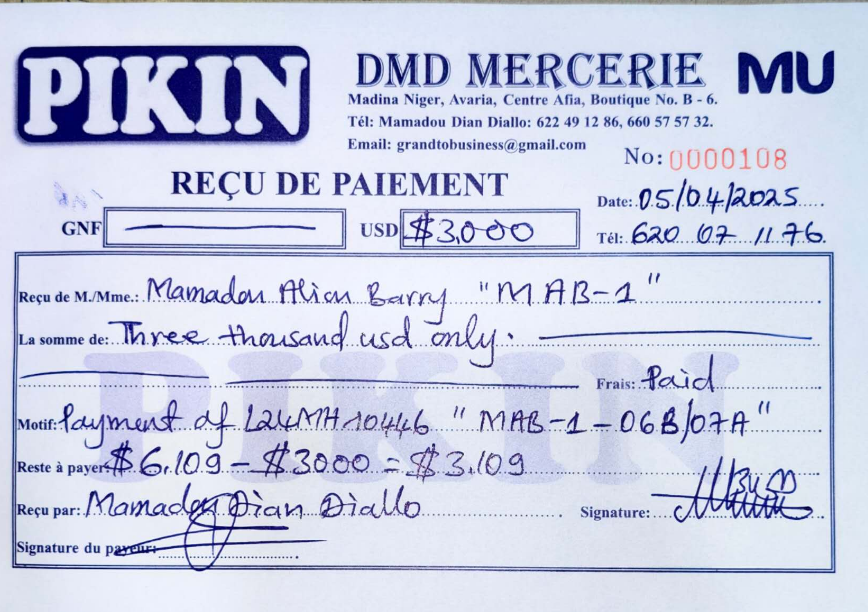 PIKIN
DMD MERCERIE
MU
Madina Niger, Avaria, Centre Afia, Boutique No. B - 6.
Tél: Mamadou Dian Diallo: 622 49 12 86, 660 57 57 32.
Email: grandtobusiness@gmail.com
No: 0000108
REÇU DE PAIEMENT
Date: 05/04/2025
GNF
USD $3,000
Tél: 620 07 11 76.
Reçu de M./Mme.: Mamadou Aliou Barry "MAB-1"
La somme de: Three thousand usd only.
PIKIN
Frais: Paid
Motif: Payment of L24MH10446 "MAB-1-06B/07A"
Reste à payer: $6.109 - $3000 = $3.109
Reçu par: Mamadou Dian Diallo
Signature:
Signature du payeur: